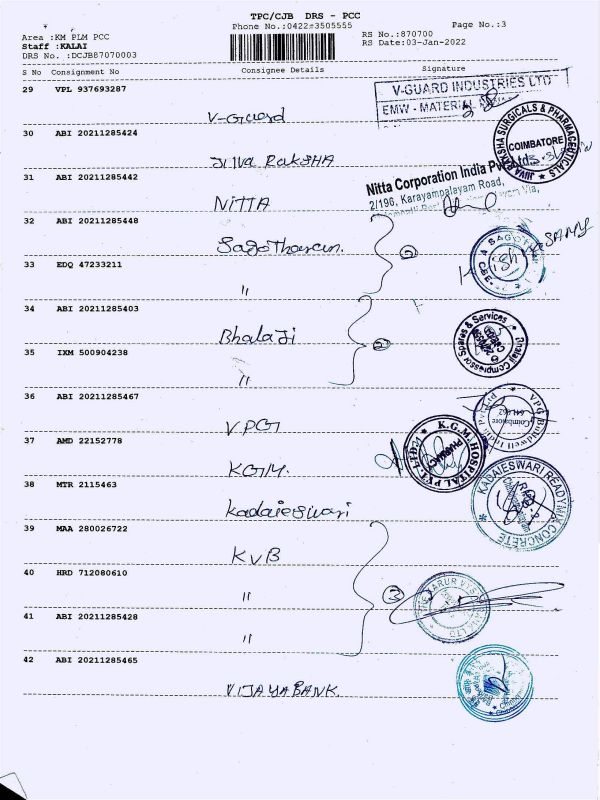 TPC/CJB DRS - PCC
Phone No.:0422#3505555
Page No.:3
Area :KM PLM PCC
RS No.:870700
Staff :KALAI
RS Date:03-Jan-2022
DRS No. :DCJB87070003
S No Consignment No Consignee Details Signature
29 VPL 937693287
V-Guard
V-GUARD INDUSTRIES LTD
EMW - MATERIAL
30 ABI 20211285424
Jiva Raksha
JIVA RAKSHA SURGICALS & PHARMACEUTICALS
COIMBATORE
31 ABI 20211285442
NITTA
Nitta Corporation India Pvt Ltd
2/196, Karayampalayam Road,
32 ABI 20211285448
Sagotharan.
①
33 EDQ 47233211
"
34 ABI 20211285403
Bhalaji
②
Balaji Compressor Spares & Services
35 IXM 500904238
"
36 ABI 20211285467
VPG
VPG Buildwell India
Coimbatore
37 AMD 22152778
KGM.
K.G.M HOSPITAL PVT. LTD
PHARMACY
38 MTR 2115463
Kadaieswari
KADAIESWARI READYMIX CONCRETE
39 MAA 280026722
KVB
40 HRD 712080610
"
③
THE KARUR VYSYA BANK LTD
41 ABI 20211285428
"
42 ABI 20211285465
VIJAYABANK.